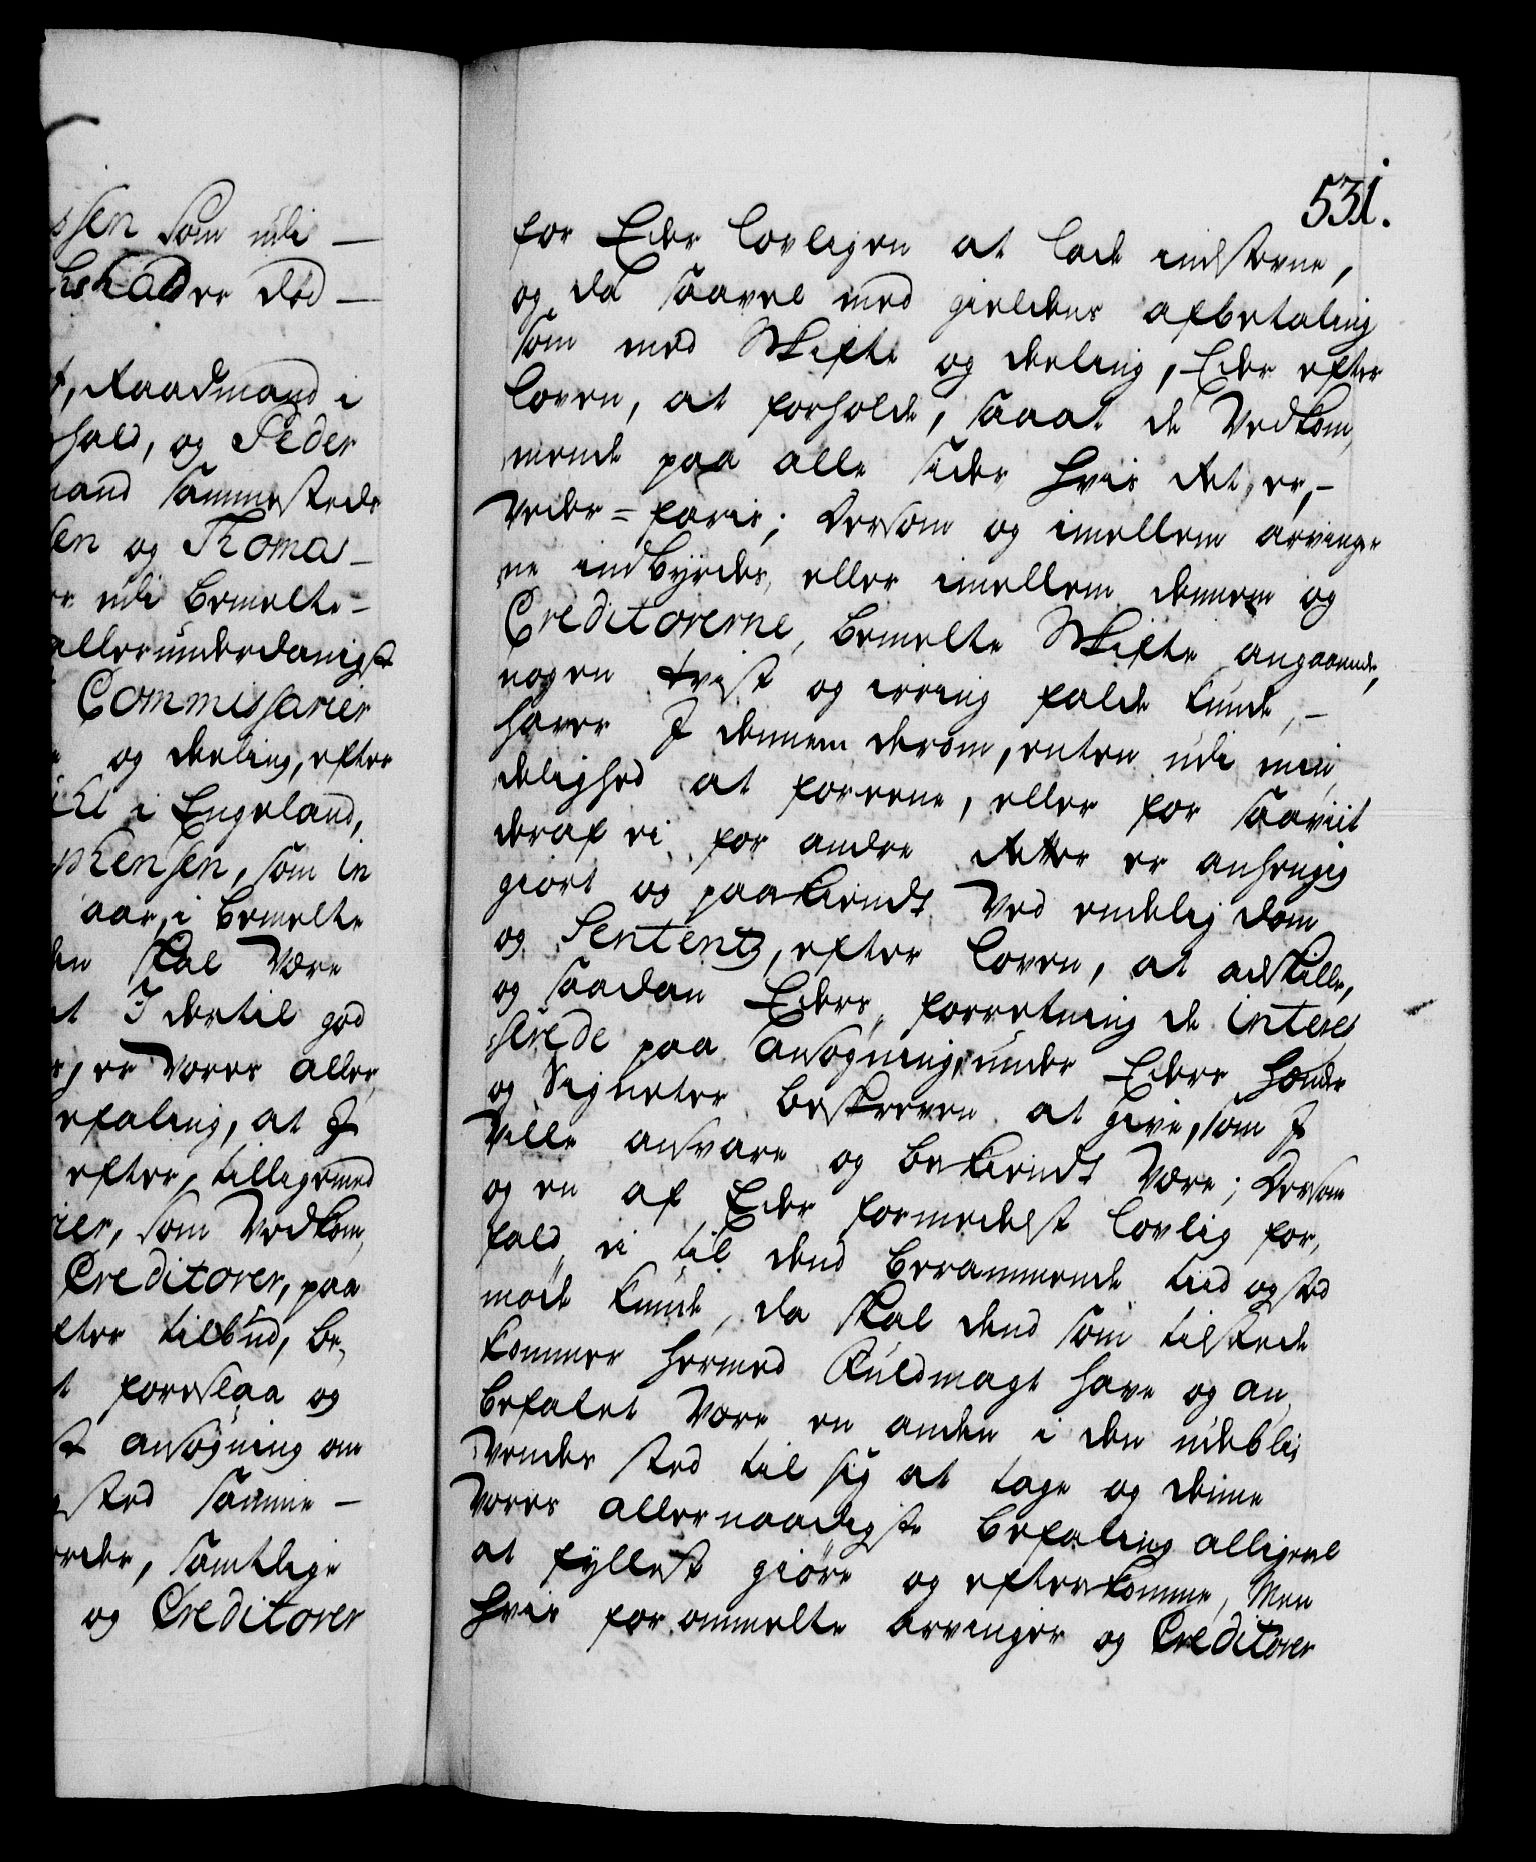 ssen som udi —
hshader død —
t, Raadmand i
hald, og Peder
mand sammesteds
sen og Thomas —
er udi bemelte —
allerunderdanigst
Commissarier
og deeling, efter
i Engeland,
phensen, som in
aar, i bemelte
den skal være
at I dertil god
er Vores aller,
efaling, at I
efter, tilligemed
rier, som Vedkom,
Creditorer, paa
efter tilbud, be,
t foreslaa og
st ansøgning om
sted samme —
erede, samtlige
og Creditorer
531.
for Eder lovligen at lade indstevne,
og da saavel med gieldens afbetaling
som med Skifte og deeling, Eder efter
loven, at forholde, saa at de Vedkom,
mende paa alle sider hvis Ret, er, —
Veder=faris; Dersom og imellem arvinger
ne indbyrdes, eller imellem dennem og
Creditorerne, bemelte Skifte angaaende,
nogen tvist og irring falde kunde, —
haver I dennem derom, enten udi min,
delighed at foreene, eller for saaviit
deraf ei for andre Retter er anhengig
giort og paakiendt Ved endelig dom
og Sententz, efter loven, at adskille,
og saadan Eders forretning de interes
serede paa ansøgning, under Eders hænder
og Signeter beskreven at give, som I
Ville ansvare og bekiendt Være; Dersom
og en af Eder formedelst lovlig for,
fald ei til dend berammende tiid og sted
møde kunde, da skal dend som tilstede
kommer hermed Fuldmagt have og an
befalet Være en anden i den udebli
Vendes sted til sig at tage og denne
Vores allernaadigste befaling alligevel
at fyllest giøre og efterkomme, Men
hvis forommelte arvinger og Creditorer